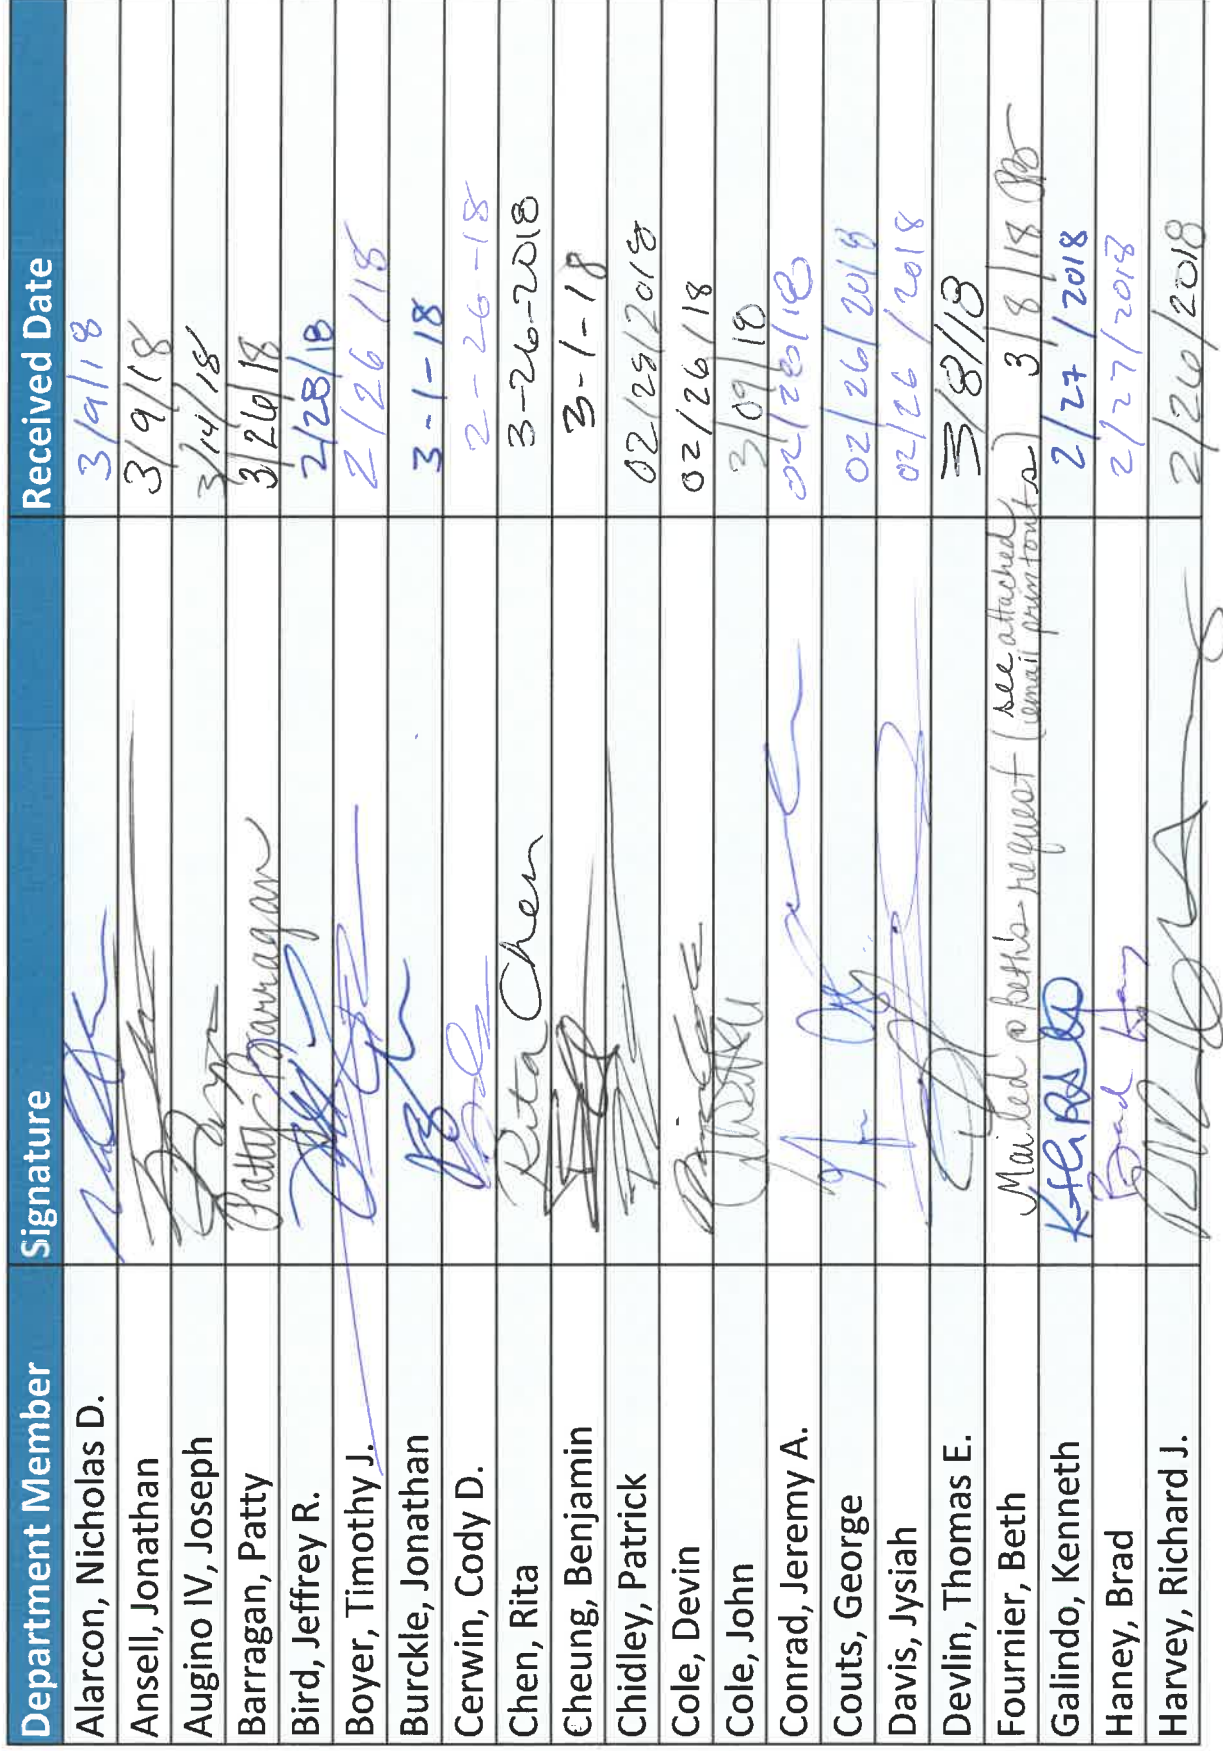 Department Member Signature Received Date
Alarcon, Nicholas D. 3/9/18
Ansell, Jonathan 3/9/18
Augino IV, Joseph 3/14/18
Barragan, Patty Patty Barragan 3/26/18
Bird, Jeffrey R. 2/28/18
Boyer, Timothy J. 2/26/18
Burckle, Jonathan 3-1-18
Cerwin, Cody D. 2-26-18
Chen, Rita Rita Chen 3-26-2018
Cheung, Benjamin 3-1-18
Chidley, Patrick 02/28/2018
Cole, Devin 02/26/18
Cole, John 3/09/18
Conrad, Jeremy A. 02/28/18
Couts, George 02/26/2018
Davis, Jysiah 02/26/2018
Devlin, Thomas E. 3/8/18
Fournier, Beth Mailed @ Beth's request (see attached email printouts) 3/8/18
Galindo, Kenneth 2/27/2018
Haney, Brad Brad Haney 2/27/2018
Harvey, Richard J. 2/26/2018